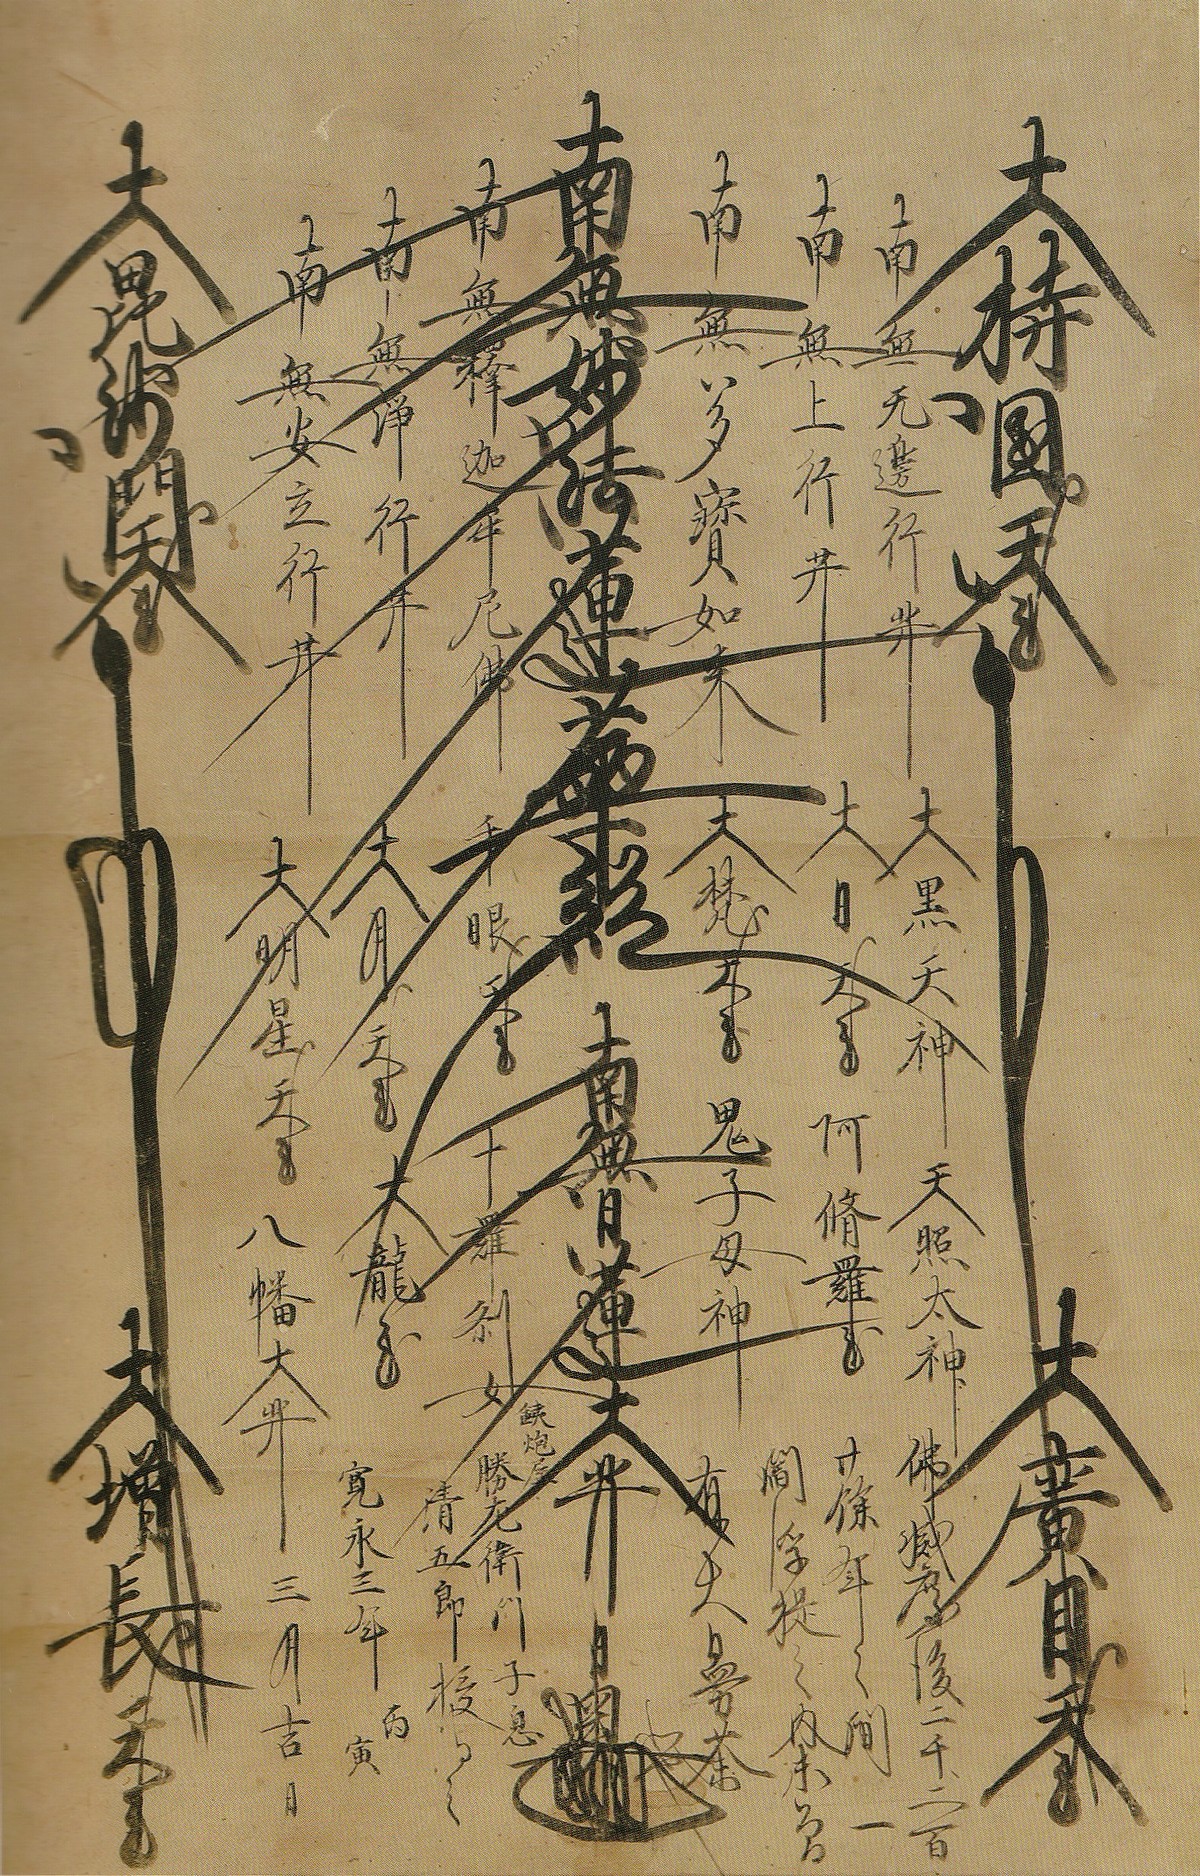 大持國天王
大廣目天王
南無无邊行井
南無上行井
南無多寶如来
南無妙法蓮華経
南無釋迦牟尼佛
南無淨行井
南無安立行井
大毘沙門天王
大増長天王
大黒天神
大日天王
大梵天王
手眼天王
大月天王
大明星天王
天照太神
阿脩羅王
鬼子母神
南無日蓮大井
十羅刹女
大龍王
八幡大井
佛滅度後二千二百
廿餘年之間 一
閻浮提之内未曽
有大曼荼
日
鉄炮屋
勝左衛門子息
清五郎授与之
寛永三年
丙
寅
三月吉日